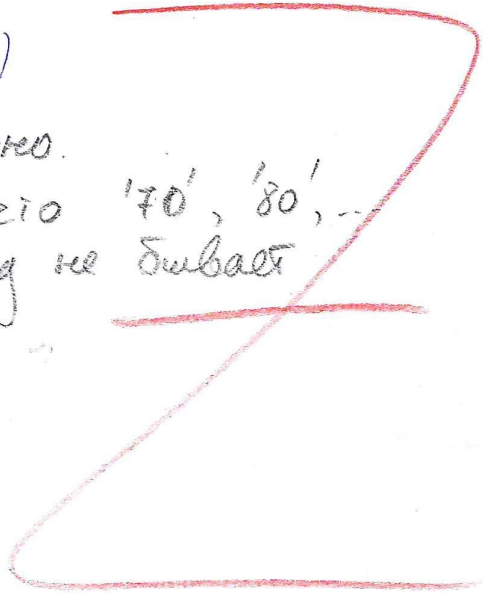 )
но.
его '70', '80', ...
д не бывает